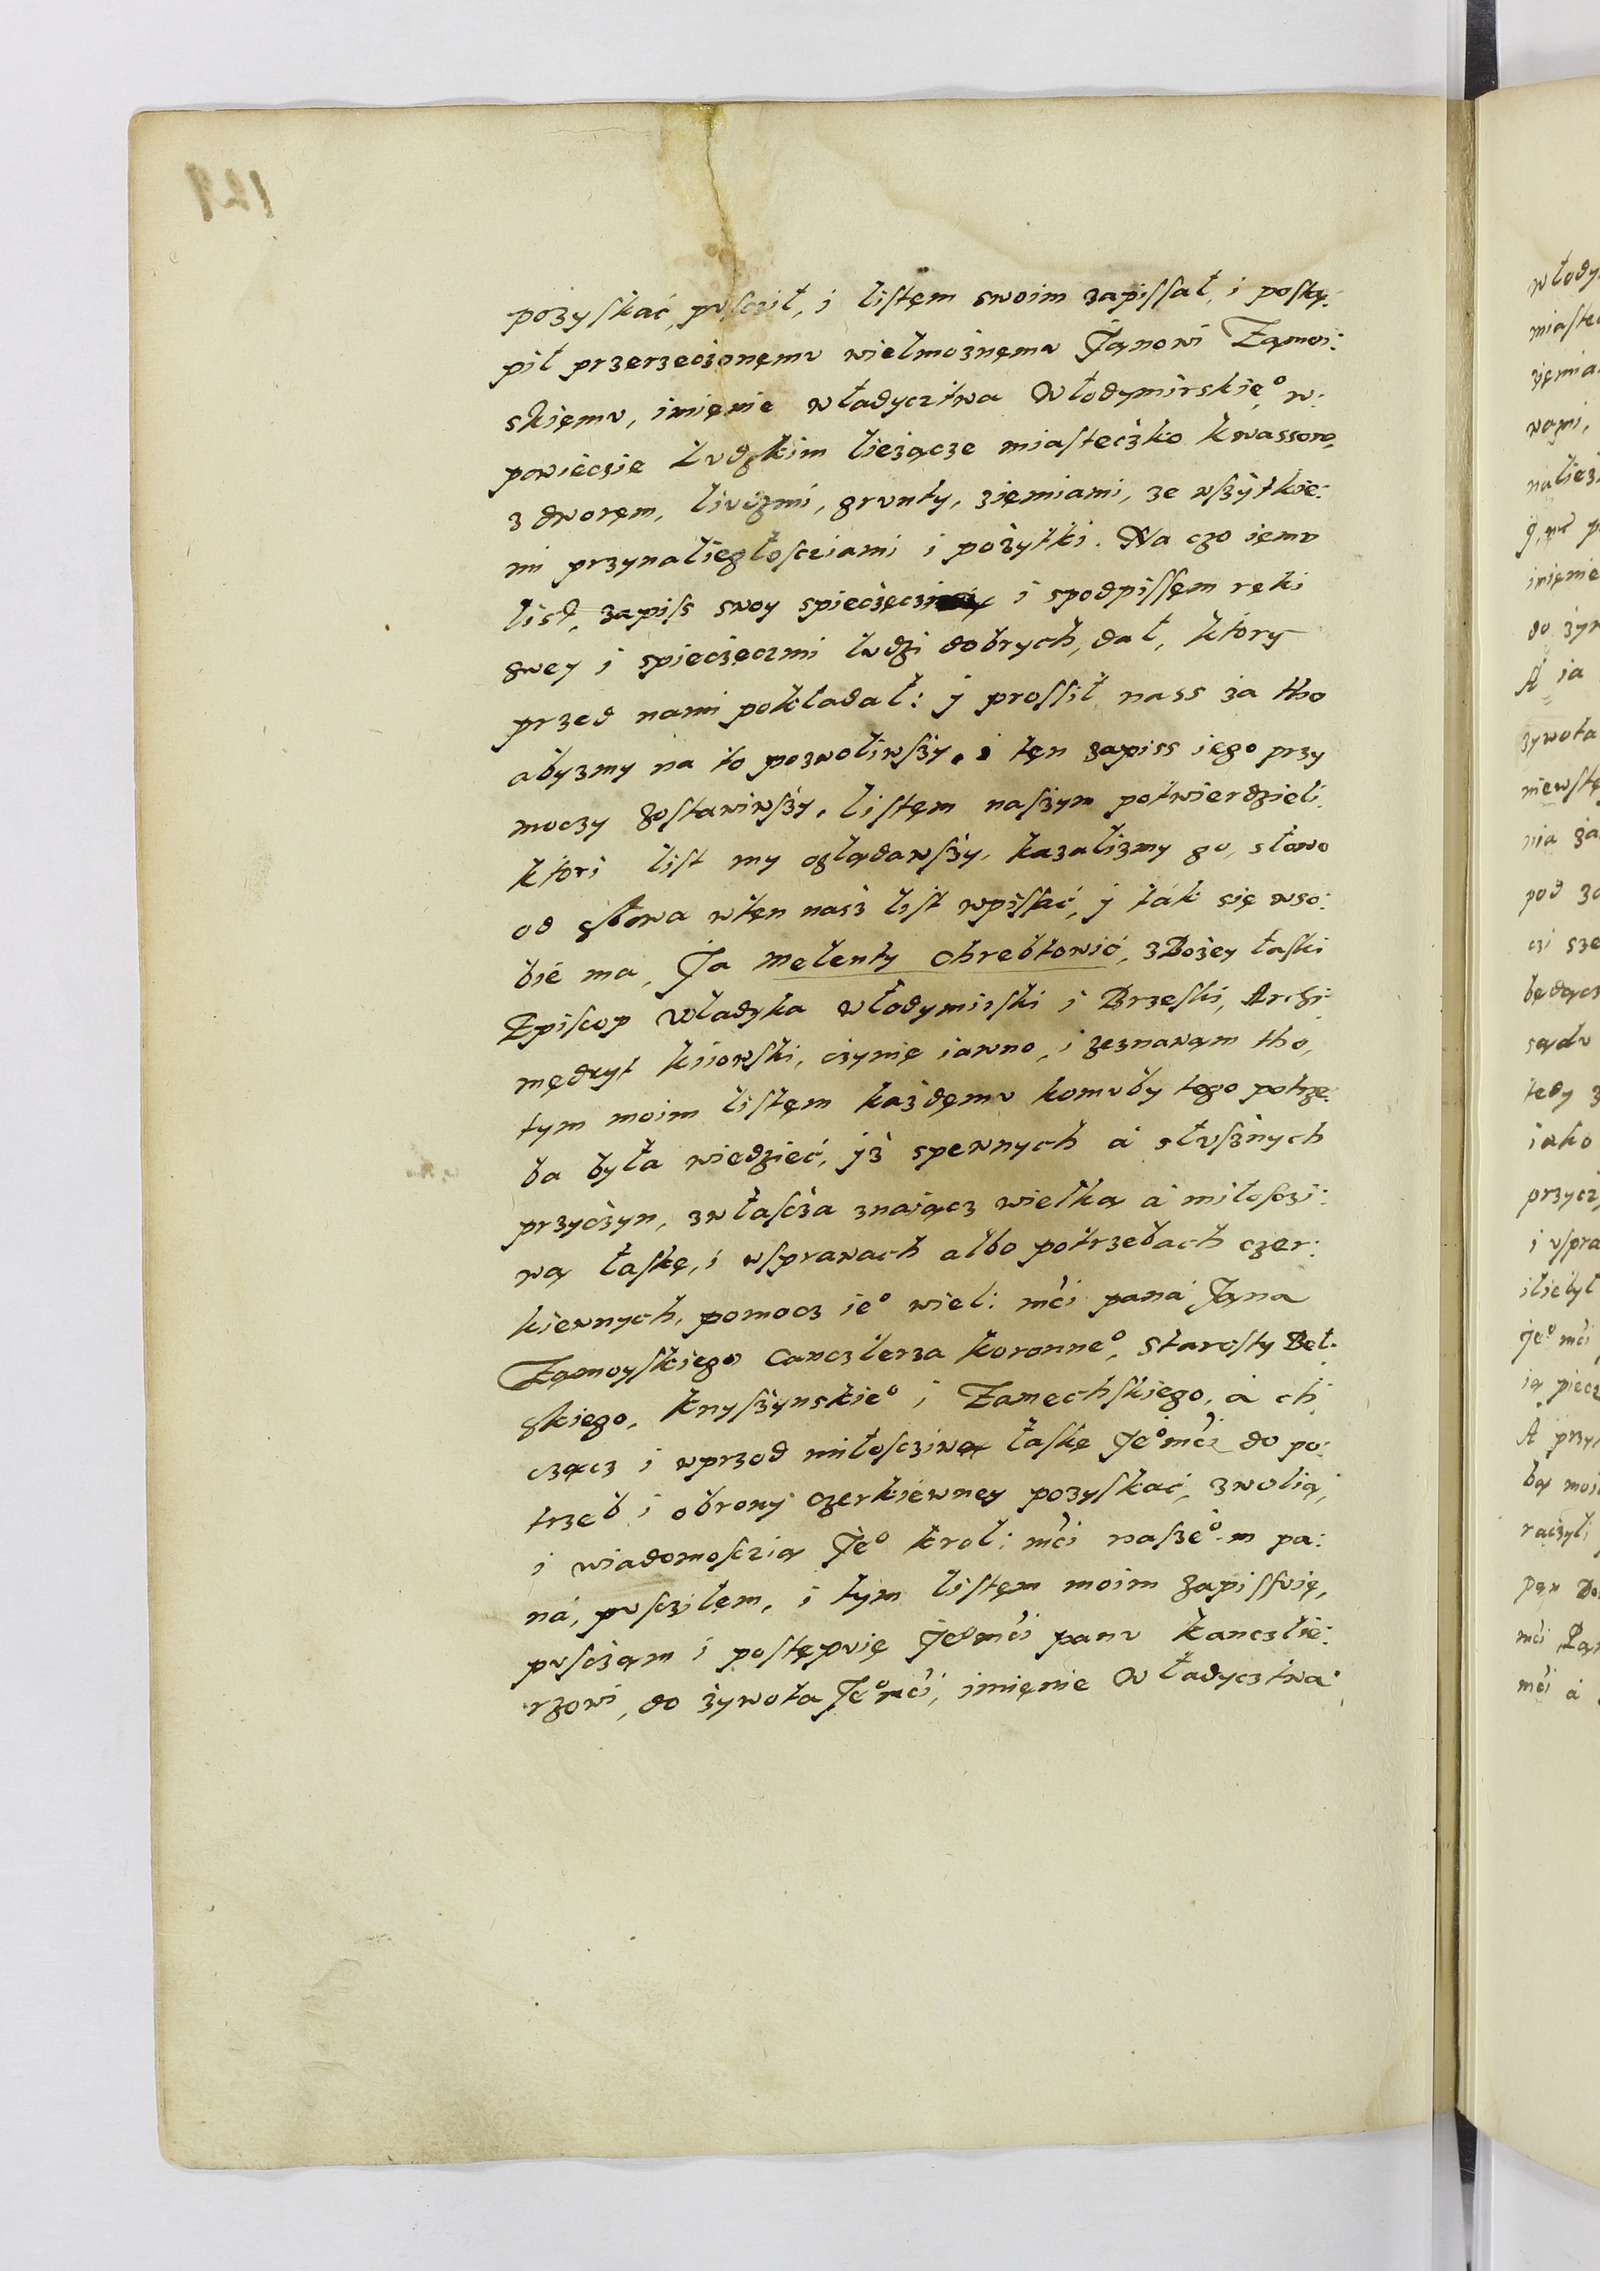 pozyskać, puscził, i listęm swoim zapissał, i postę:
pił przerzeczonęmu wielmożnęmu Jąnowi Ząmoi:
skięmu, imięnie władycztwa Włodymirskię° w:
powieczie Ludzkim lieżącze miasteczko kwassow,
z dworęm, liudzmi, grunty, zięmiami, ze wszytkie:
mi przynaliegłosciami i pożytki. Na czo ięmu
list, zapiss swoy spieczęczi i spodpissęm ręki
swey i spieczęczmi ludzi dobrych, dał, ktory
przed nami pokładał: y prossił nass za tho
abyzmy na to pozwoliwszy, i tęn zapiss iego przy
moczy zostawiwszy, listęm naszym potwierdzieli.
ktori list my oglądawszy, kazalizmy go, słowo
od słowa wtęn nasz list wpissać, y ták się wso:
bie ma, Ja Melenty Chrebtowić, z Bożey łaski
Episcop Władyka Włodymirski i Brzeski, Archi:
mędryt kiiowski, czynię iawno, i zeznawąm tho,
tym moim listęm każdęmu komuby tego potrze:
ba była wiedzieć, yż spewnych á słusznych
przyczyn, zwłascza znaiącz wielką á miłosczi:
wą łaskę, i wsprawach albo potrzebach czer:
kiewnych, pomocz ie° wiel: mći paná Jąna
Ząmoyskiego Canczlerza koronne°, Starosty Bel:
skiego, knyszynskie° i Zamechskiego, á ch
cząćz i wprzod miłosciwą łaskę Je°mći do po:
trzeb i obrony czerkiewney pozyskać, zwolią,
i wiadomosczią Je° krol: mći nasze° m pa:
ná, pusczilęm, i tym listęm moim zapissuię,
pusczam i postępuię Je°mći panu kanczlie:
rzowi, do żywota Je°mći, imięnie Władycztwa